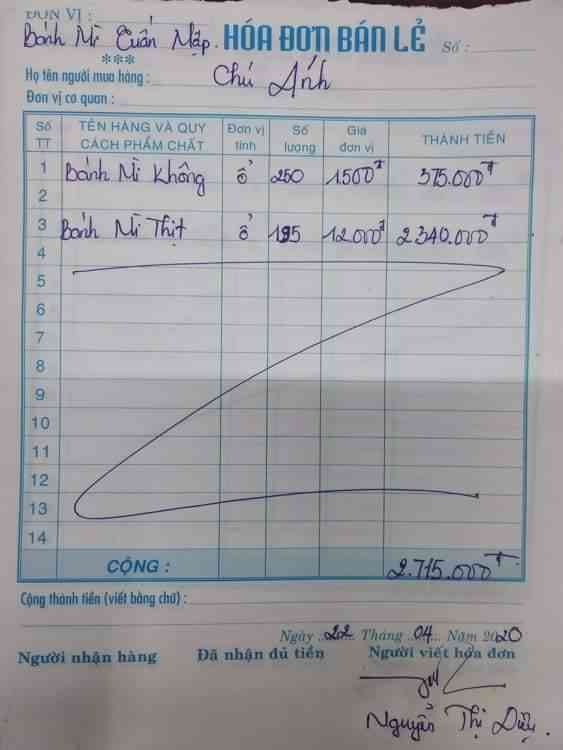 ĐƠN VỊ :
Bánh Mì Tuấn Mập.
HÓA ĐƠN BÁN LẺ Số :
***
Họ tên người mua hàng : Chú Ánh
Đơn vị cơ quan :
Số TT TÊN HÀNG VÀ QUY CÁCH PHẨM CHẤT Đơn vị tính Số lượng Giá đơn vị THÀNH TIỀN
1 Bánh Mì Không ổ 250 1.500đ 375.000đ
2
3 Bánh Mì Thịt ổ 195 12.000đ 2.340.000đ
4
5
6
7
8
9
10
11
12
13
14
CỘNG : 2.715.000đ
Cộng thành tiền (viết bằng chữ) :
Ngày 22 Tháng 04 Năm 2020
Người nhận hàng Đã nhận đủ tiền Người viết hóa đơn
Nguyễn Thị